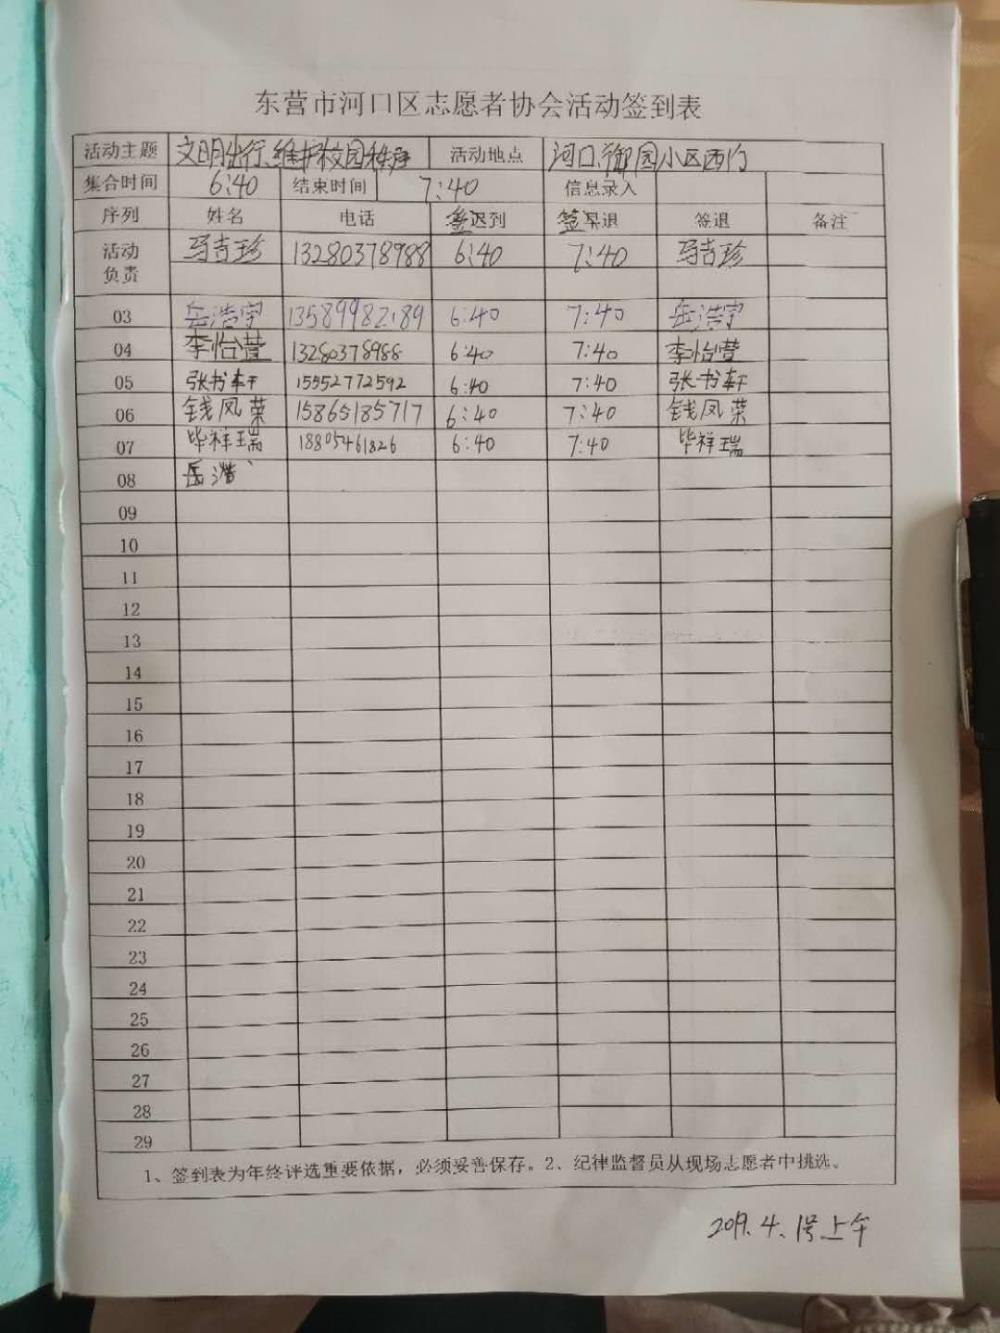 东营市河口区志愿者协会活动签到表
活动主题 文明出行、维护校园秩序 活动地点 河口、御园小区西门
集合时间 6:40 结束时间 7:40 信息录入
序列 姓名 电话 签迟到 签早退 签退 备注
活动负责 马吉珍 13280378988 6:40 7:40 马吉珍
03 岳浩宇 13589982189 6:40 7:40 岳浩宇
04 李怡萱 13280378988 6:40 7:40 李怡萱
05 张书轩 15552772592 6:40 7:40 张书轩
06 钱凤荣 15865185717 6:40 7:40 钱凤荣
07 毕祥瑞 18805461826 6:40 7:40 毕祥瑞
08 岳
09
10
11
12
13
14
15
16
17
18
19
20
21
22
23
24
25
26
27
28
29
1、签到表为年终评选重要依据，必须妥善保存。2、纪律监督员从现场志愿者中挑选。
2019.4.1号上午